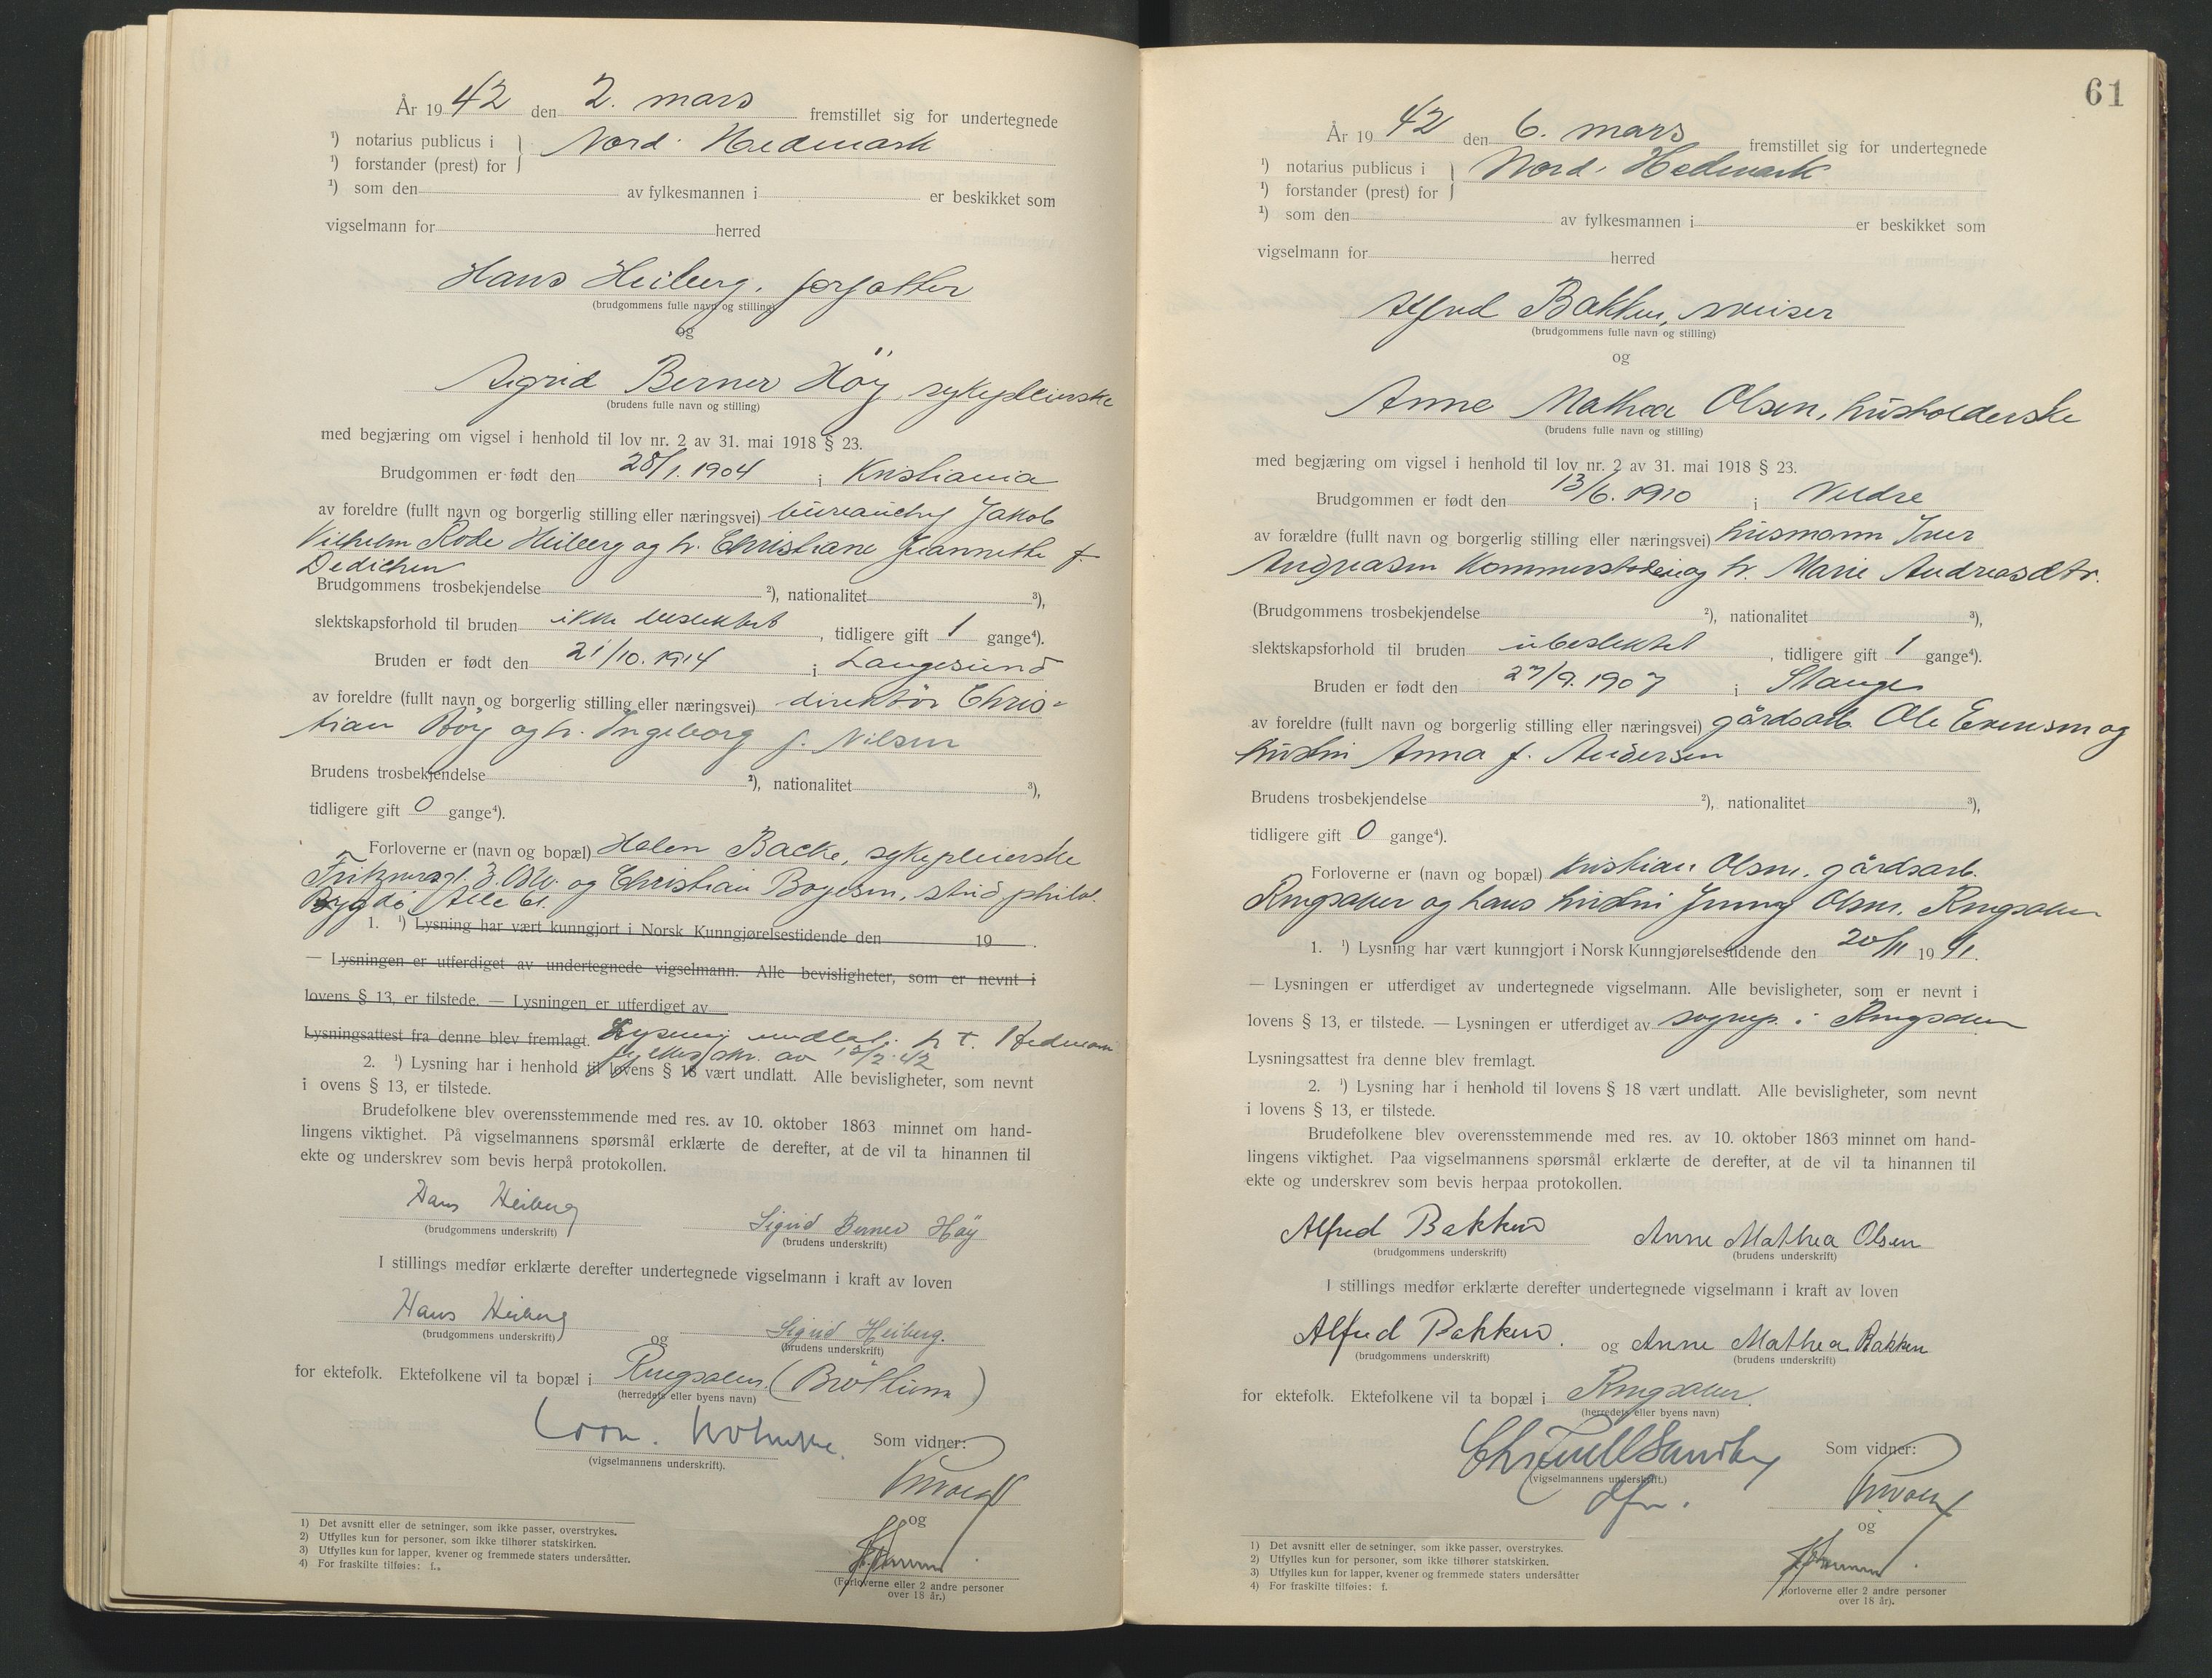 År 1942 den 2. mars fremstillet sig for undertegnede
¹) notarius publicus i } Nord-Hedmark
¹) forstander (prest) for
¹) som den av fylkesmannen i er beskikket som
vigselmann for herred
Hans Heiberg, forfatter
(brudgommens fulle navn og stilling)
og
Sigrid Berner Höy, sykepleierske
(brudens fulle navn og stilling)
med begjæring om vigsel i henhold til lov nr. 2 av 31. mai 1918 § 23.
Brudgommen er født den 28/1.1904 i Kristiania
av foreldre (fullt navn og borgerlig stilling eller næringsvei) bureauchef Jakob
Vilhelm Rode Heiberg og h. Christiane Jeannette f.
Dedichen
Brudgommens trosbekjendelse ²), nationalitet ³),
slektskapsforhold til bruden ikke beslektet, tidligere gift 1 gange⁴).
Bruden er født den 21/10.1914 i Langesund
av foreldre (fullt navn og borgerlig stilling eller næringsvei) direktör Chris-
tian Höy og h. Ingeborg f. Nilsen
Brudens trosbekjendelse ²), nationalitet ³),
tidligere gift 0 gange⁴).
Forloverne er (navn og bopæl) Helen Backe, sykepleierske
3. og Christian Boyesen, stud. philol.
Bygdö Alle 61.
1. ¹) Lysning har vært kunngjort i Norsk Kunngjørelsestidende den 19 .
— Lysningen er utferdiget av undertegnede vigselmann. Alle bevisligheter, som er nevnt i
lovens § 13, er tilstede. — Lysningen er utferdiget av
Lysningsattest fra denne blev fremlagt. Lysning undlat. h. t. Hedmark
fylkes skr. av /2.42
2. ¹) Lysning har i henhold til lovens § 18 vært undlatt. Alle bevisligheter, som nevnt
i ovens § 13, er tilstede.
Brudefolkene blev overensstemmende med res. av 10. oktober 1863 minnet om hand-
lingens viktighet. På vigselmannens spørsmål erklærte de derefter, at de vil ta hinannen til
ekte og underskrev som bevis herpå protokollen.
Hans Heiberg Sigrid Berner Höy
(brudgommens underskrift) (brudens underskrift)
I stillings medfør erklærte derefter undertegnede vigselmann i kraft av loven
Hans Heiberg og Sigrid Heiberg.
(brudgommens underskrift) (brudens underskrift)
for ektefolk. Ektefolkene vil ta bopæl i Ringsaker (Bröttum)
(herredets eller byens navn)
Som vidner:
(vigselmannens underskrift).
og
(Forloverne eller 2 andre personer
over 18 år.)
1) Det avsnitt eller de setninger, som ikke passer, overstrykes.
2) Utfylles kun for personer, som ikke tilhører statskirken.
3) Utfylles kun for lapper, kvener og fremmede staters undersåtter.
4) For fraskilte tilføies: f..
61
År 1942 den 6. mars fremstillet sig for undertegnede
¹) notarius publicus i } Nord-Hedmark
¹) forstander (prest) for
¹) som den av fylkesmannen i er beskikket som
vigselmann for herred
Alfred Bakken, sveiser
(brudgommens fulle navn og stilling)
og
Anne Mathea Olsen, husholderske
(brudens fulle navn og stilling)
med begjæring om vigsel i henhold til lov nr. 2 av 31. mai 1918 § 23.
Brudgommen er født den 13/6.1910 i Veldre
av forældre (fullt navn og borgerlig stilling eller næringsvei) husmann Iver
Andreasen og h. Marie Andreasdtr.
(Brudgommens trosbekjendelse ²), nationalitet ³),
slektskapsforhold til bruden ubeslektet, tidligere gift 1 gange⁴).
Bruden er født den 27/9.1907 i Stange
av foreldre (fullt navn og borgerlig stilling eller næringsvei) gårdsarb. Ole Evensen og
hustru Anna f. Andersen
Brudens trosbekjendelse ²), nationalitet ³),
tidligere gift 0 gange⁴).
Forloverne er (navn og bopæl) Kristian Olsen, gårdsarb.
Ringsaker og hans hustru Jenny Olsen, Ringsaker
1. ¹) Lysning har vært kunngjort i Norsk Kunngjørelsestidende den 20/11 1941.
— Lysningen er utferdiget av undertegnede vigselmann. Alle bevisligheter, som er nevnt i
lovens § 13, er tilstede. — Lysningen er utferdiget av sognep. i Ringsaker
Lysningsattest fra denne blev fremlagt.
2. ¹) Lysning har i henhold til lovens § 18 vært undlatt. Alle bevisligheter, som nevnt
i lovens § 13, er tilstede.
Brudefolkene blev overensstemmende med res. av 10. oktober 1863 minnet om hand-
lingens viktighet. Paa vigselmannens spørsmål erklærte de derefter, at de vil ta hinannen til
ekte og underskrev som bevis herpaa protokollen.
Alfred Bakken Anne Mathea Olsen
(brudgommens underskrift) (brudens underskrift)
I stillings medfør erklærte derefter undertegnede vigselmann i kraft av loven
Alfred Bakken. og Anne Mathea Bakken
(brudgommens underskrift) (brudens underskrift)
for ektefolk. Ektefolkene vil ta bopæl i Ringsaker.
(herredets eller byens navn)
Som vidner:
(vigselmannens underskrift.)
og
(Forloverne eller 2 andre personer
over 18 år).
1) Det avsnitt eller de setninger, som ikke passer, overstrykes.
2) Utfylles kun for personer, som ikke tilhører statskirken.
3) Utfylles kun for lapper, kvener og fremmede staters undersåtter
4) For fraskilte tilføies: f.